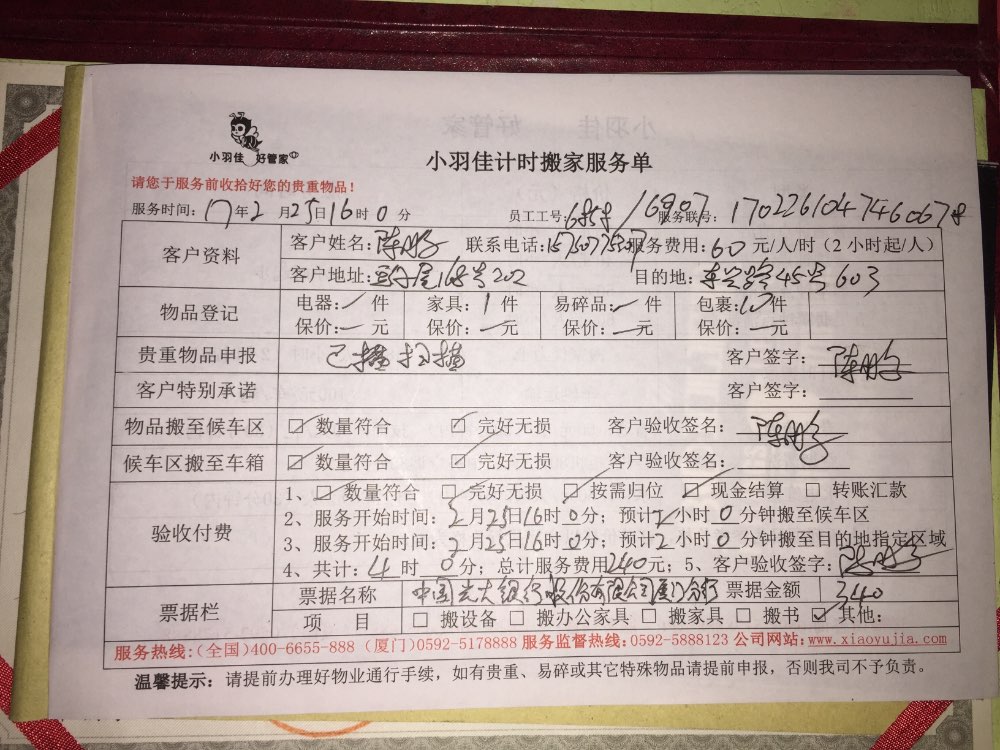 小羽佳 好管家
小羽佳计时搬家服务单
请您于服务前收拾好您的贵重物品！
服务时间：17年2月25日16时0分 员工工号： /6907 服务联号：
客户资料 客户姓名：陈鹏 联系电话： 服务费用：60元/人/时（2小时起/人）
客户地址： 202 目的地：东兴路45号603
物品登记 电器： 件 家具：1件 易碎品： 件 包裹：10件
保价：—元 保价：—元 保价：—元 保价：—元
贵重物品申报 已 扫描 客户签字：陈鹏
客户特别承诺 客户签字：
物品搬至候车区 ☑ 数量符合 ☑ 完好无损 客户验收签名：陈鹏
候车区搬至车箱 ☑ 数量符合 ☑ 完好无损 客户验收签名：
验收付费 1、☑ 数量符合 ☑ 完好无损 ☑ 按需归位 ☑ 现金结算 □ 转账汇款
2、服务开始时间：2月25日16时0分；预计2小时0分钟搬至候车区
3、服务开始时间：2月25日16时0分；预计2小时0分钟搬至目的地指定区域
4、共计：4时0分；总计服务费用240元；5、客户验收签字：陈鹏
票据栏 票据名称 中国光大银行股份有限公司厦门分行 票据金额 340
项 目 □ 搬设备 □ 搬办公家具 □ 搬家具 □ 搬书 ☑ 其他：
服务热线：（全国）400-6655-888（厦门）0592-5178888 服务监督热线：0592-5888123 公司网站：www.xiaoyujia.com
温馨提示：请提前办理好物业通行手续，如有贵重、易碎或其它特殊物品请提前申报，否则我司不予负责。